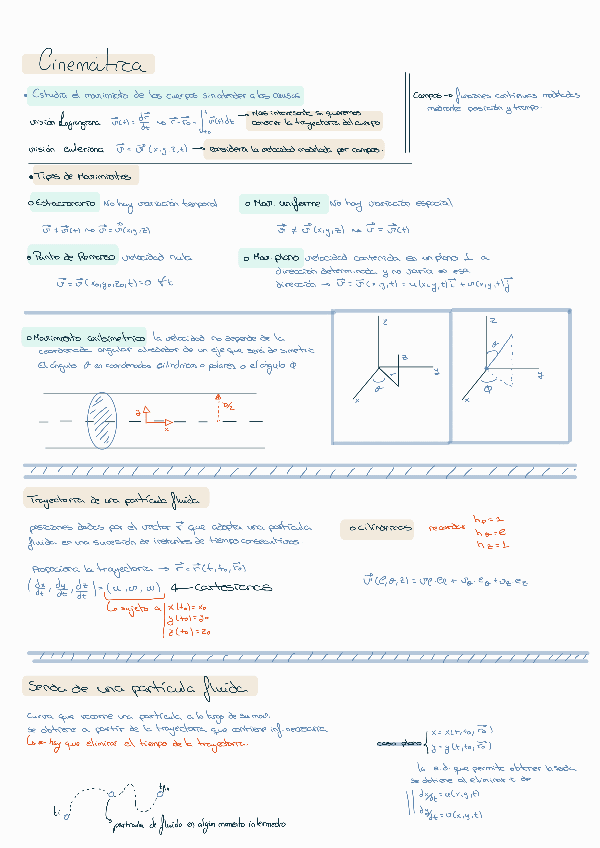 Cinemática
• Estudia el movimiento de los cuerpos sin atender a las causas
visión lagrangiana v⃗(t) = dr⃗/dt ⇝ r⃗ - r⃗₀ = ∫ v⃗(t) dt → Más interesante si queremos
conocer la trayectoria del cuerpo
visión euleriana v⃗ = v⃗(x,y,z,t) → considera la velocidad modelada por campos.
Campos → funciones continuas modeladas
mediante posición y tiempo
• Tipos de Movimientos
o Estacionario No hay variación temporal
v⃗ ≠ v⃗(t) ⇝ v⃗ = v⃗(x,y,z)
o Mov. uniforme No hay variación espacial
v⃗ ≠ v⃗(x,y,z) ⇝ v⃗ = v⃗(t)
o Punto de Remanso velocidad nula
v⃗ = v⃗(x₀,y₀,z₀,t) = 0 ∀t
o Mov. plano velocidad contenida en un plano ⊥ a
dirección determinada y no varía en esa
dirección → v⃗ = v⃗(x,y,t) = u(x,y,t) i⃗ + v(x,y,t) j⃗
o Movimiento axilsimétrico la velocidad no depende de la
coordenada angular alrededor de un eje que será de simetría
El ángulo θ en coordenadas cilíndricas o polares o el ángulo φ
z
z
r
θ
x
y
z
θ
φ
x
y
z
x
D/2
Trayectoria de una partícula fluida
posiciones dadas por el vector r⃗ que adopta una partícula
fluida en una sucesión de instantes de tiempo consecutivos
Proporciona la trayectoria → r⃗ = r⃗(t,t₀,r⃗₀)
(dx/dt, dy/dt, dz/dt) = (u, v, w) ← Cartesianas
↳ sujeto a x(t₀) = x₀
y(t₀) = y₀
z(t₀) = z₀
o cilíndricas
recordar h_ρ = 1
h_θ = ρ
h_z = 1
v⃗(ρ,θ,z) = v_ρ e_ρ + v_θ e_θ + v_z e_z
Senda de una partícula fluida
Curva que recorre una partícula a lo largo de su mov.
se obtiene a partir de la trayectoria que contiene inf. necesaria
↳ hay que eliminar el tiempo de la trayectoria.
caso plano x = x(t,t₀,r⃗₀)
y = y(t,t₀,r⃗₀)
la e.d. que permite obtener la senda
se obtiene al eliminar t de
dx/dt = u(x,y,t)
dy/dt = v(x,y,t)
partícula de fluido en algún momento intermedio